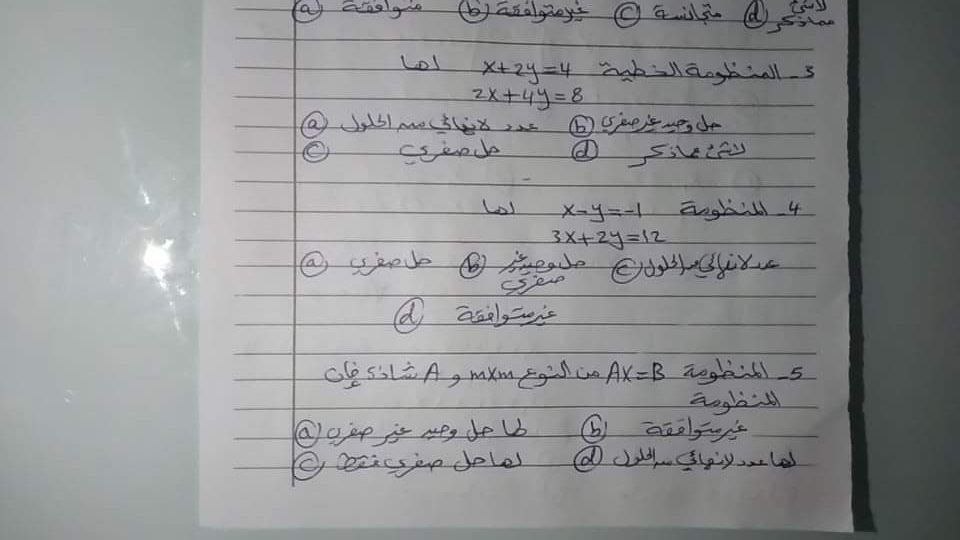 a متوافقة b غير متوافقة c متجانسة d لاشئ مماذكر
3- المنظومة الخطية x+2y=4 لها
2x+4y=8
a عدد لانهائي من الحلول b حل وحيد غير صفري
c حل صفري d لاشئ مماذكر
4- المنظومة x-y=-1 لها
3x+2y=12
a حل صفري b حل وحيد غير صفري c عدد لانهائي من الحلول
d غير متوافقة
5- المنظومة AX=B من النوع mxm و A شاذة فإن
المنظومة
a لها حل وحيد غير صفري b غير متوافقة
c لها حل صفري فقط d لها عدد لانهائي من الحلول